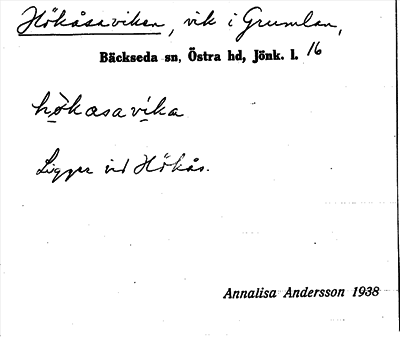 Hökåsaviken, vik i Grumlan,
Bäckseda sn, Östra hd, Jönk. l. 16
hökasavika
Ligger vid Hökås.
Annalisa Andersson 1938